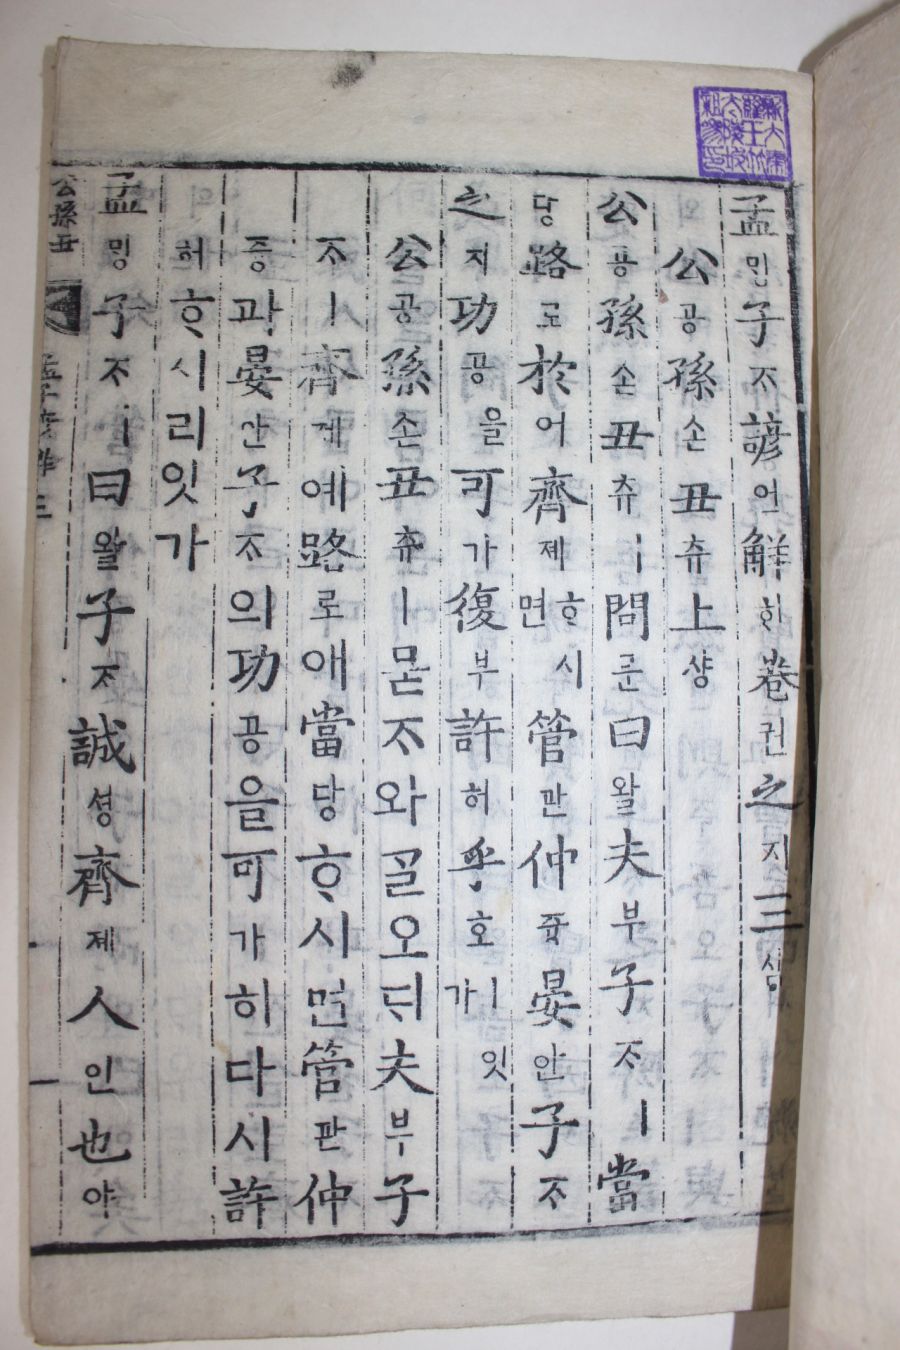 孟밍子ᄌᆞ諺언解ᄒᆡ卷권之지三삼
公공孫손丑츄上샹
公공孫손丑츄ㅣ問문曰왈夫부子ᄌᆞㅣ當
당路로於어齊제ᄒᆞ시면管관仲듕晏안子ᄌᆞ
之지功공을可가復부許허乎호ㅣ잇가
公공孫손丑츄ㅣ묻ᄌᆞ와ᄀᆞᆯ오ᄃᆡ夫부子
ᄌᆞㅣ齊제예路로애當당ᄒᆞ시면管관仲
듕과晏안子ᄌᆞ의功공을可가히다시許
허ᄒᆞ시리잇가
孟밍子ᄌᆞㅣ曰왈子ᄌᆞ誠셩齊제人인也야
公孫丑
孟子諺解 三